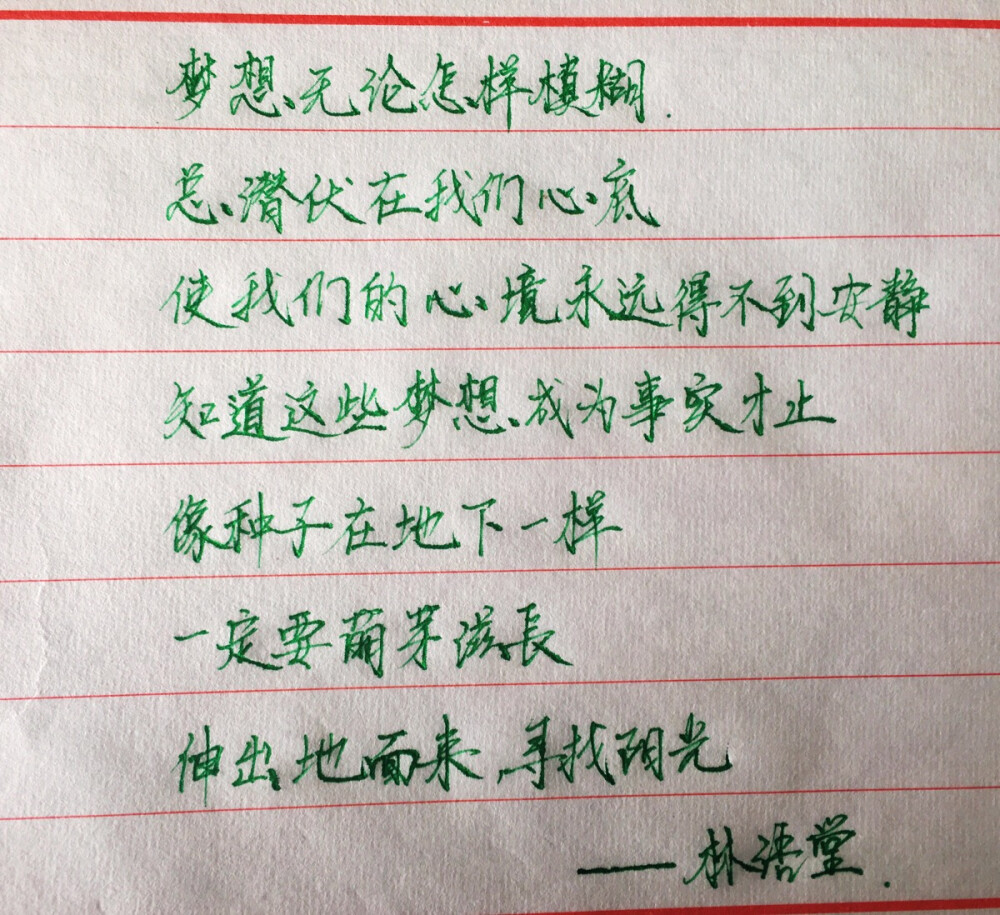 梦想无论怎样模糊.
总潜伏在我们心底
使我们的心境永远得不到安静
知道这些梦想成为事实才止
像种子在地下一样
一定要萌芽滋長
伸出地面来,寻找阳光
——林语堂.